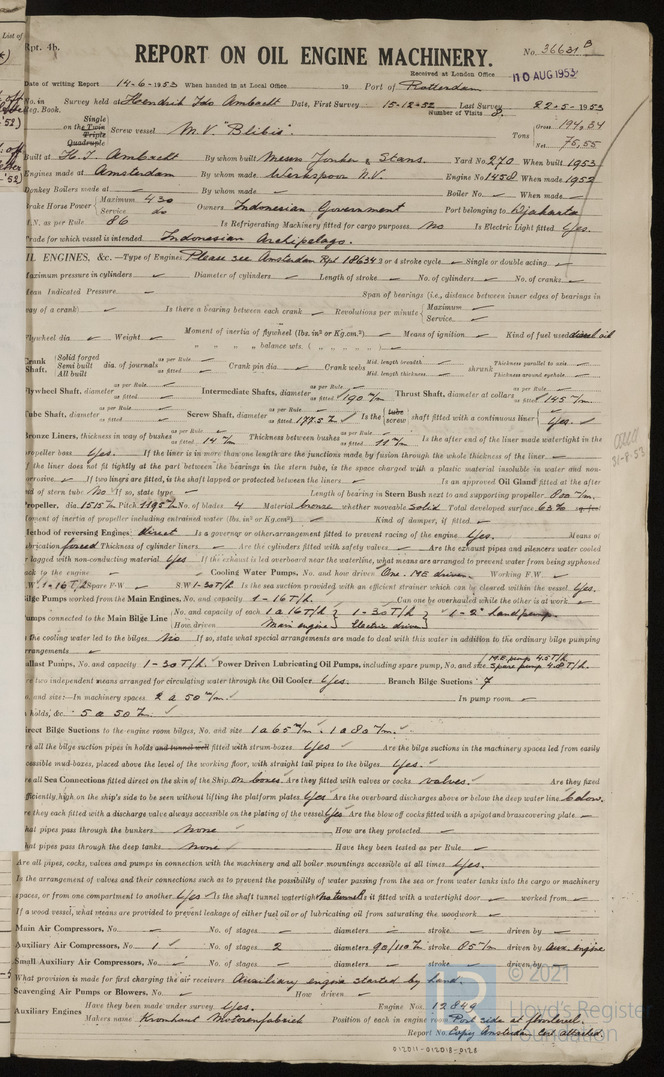 Rpt. 4b.
REPORT ON OIL ENGINE MACHINERY.
No. 36631 B
Received at London Office 10 AUG 1953
Date of writing Report 14-6-1953 When handed in at Local Office 19 Port of Rotterdam
No. in Survey held at Hendrik Ido Ambacht Date, First Survey 15-12-52 Last Survey 22-5-1953
Reg. Book. Number of Visits 8.
on the Single Twin Triple Quadruple Screw vessel M.V. "Blibis". Tons Gross 194,34 Net 75,55
Built at H. I. Ambacht By whom built Messrs Jonker & Stans. Yard No. 270 When built 1953
Engines made at Amsterdam By whom made Werkspoor N.V. Engine No. 1458 When made 1952
Donkey Boilers made at By whom made Boiler No. When made
Brake Horse Power Maximum 430 Service do Owners Indonesian Government Port belonging to Djakarta
M.N. as per Rule 86 Is Refrigerating Machinery fitted for cargo purposes No Is Electric Light fitted Yes.
Trade for which vessel is intended Indonesian Archipelago.
OIL ENGINES, &c.—Type of Engines Please see Amsterdam Rpt. 18634 2 or 4 stroke cycle Single or double acting
Maximum pressure in cylinders Diameter of cylinders Length of stroke No. of cylinders No. of cranks
Mean Indicated Pressure Span of bearings (i.e., distance between inner edges of bearings in
way of a crank) Is there a bearing between each crank Revolutions per minute Maximum Service
Flywheel dia Weight Moment of inertia of flywheel (lbs. in² or Kg.cm.²) Means of ignition Kind of fuel used diesel oil
" " " balance wts. ( " " " )
Crank Shaft, Solid forged Semi built All built dia. of journals as per Rule as fitted Crank pin dia Crank webs Mid. length breadth Mid. length thickness shrunk Thickness parallel to axis Thickness around eyehole
Flywheel Shaft, diameter as per Rule as fitted Intermediate Shafts, diameter as per Rule as fitted 190 m/m Thrust Shaft, diameter at collars as per Rule as fitted 145 m/m.
Tube Shaft, diameter as per Rule as fitted Screw Shaft, diameter as per Rule as fitted 177.5 m/m Is the tube screw shaft fitted with a continuous liner Yes.
Bronze Liners, thickness in way of bushes as per Rule as fitted 14 m/m Thickness between bushes as per Rule as fitted 11 m/m Is the after end of the liner made watertight in the
propeller boss Yes. If the liner is in more than one length are the junctions made by fusion through the whole thickness of the liner
If the liner does not fit tightly at the part between the bearings in the stern tube, is the space charged with a plastic material insoluble in water and non-
corrosive If two liners are fitted, is the shaft lapped or protected between the liners Is an approved Oil Gland fitted at the after
end of stern tube No If so, state type Length of bearing in Stern Bush next to and supporting propeller 800 m/m.
Propeller, dia. 1515 m/m Pitch 1195 m/m No. of blades 4 Material bronze whether moveable solid Total developed surface 63% sq. feet
Moment of inertia of propeller including entrained water (lbs. in² or Kg.cm²) Kind of damper, if fitted
Method of reversing Engines direct Is a governor or other arrangement fitted to prevent racing of the engine Yes. Means of
lubrication forced Thickness of cylinder liners Are the cylinders fitted with safety valves Are the exhaust pipes and silencers water cooled
or lagged with non-conducting material Yes If the exhaust is led overboard near the waterline, what means are arranged to prevent water from being syphoned
back to the engine Cooling Water Pumps, No. and how driven One. M.E. driven. Working F.W.
S.W. 1-16 T/h Spare F.W S.W. 1-30 T/h. Is the sea suction provided with an efficient strainer which can be cleared within the vessel Yes.
Bilge Pumps worked from the Main Engines, No. and capacity 1-16 T/h. Can one be overhauled while the other is at work
Pumps connected to the Main Bilge Line No. and capacity of each 1 a 16 T/h 1-30 T/h. 1-2" handpump
How driven Main engine Electric driven
Is the cooling water led to the bilges No If so, state what special arrangements are made to deal with this water in addition to the ordinary bilge pumping
arrangements
Ballast Pumps, No. and capacity 1-30 T/h. Power Driven Lubricating Oil Pumps, including spare pump, No. and size M.E. pump 4.5 T/h. Spare pump 4.8 T/h.
Are two independent means arranged for circulating water through the Oil Cooler Yes. Branch Bilge Suctions 7
No. and size:—In machinery spaces 2 a 50 m/m. In pump room
In holds, &c. 5 a 50 m/m.
Direct Bilge Suctions to the engine room bilges, No. and size 1 a 65 m/m. 1 a 80 m/m.
Are all the bilge suction pipes in holds and tunnel well fitted with strum-boxes Yes Are the bilge suctions in the machinery spaces led from easily
accessible mud-boxes, placed above the level of the working floor, with straight tail pipes to the bilges Yes.
Are all Sea Connections fitted direct on the skin of the Ship On boxes Are they fitted with valves or cocks valves. Are they fixed
sufficiently high on the ship's side to be seen without lifting the platform plates Yes Are the overboard discharges above or below the deep water line below.
Are they each fitted with a discharge valve always accessible on the plating of the vessel Yes Are the blow off cocks fitted with a spigot and brass covering plate
What pipes pass through the bunkers none How are they protected
What pipes pass through the deep tanks none Have they been tested as per Rule
Are all pipes, cocks, valves and pumps in connection with the machinery and all boiler mountings accessible at all times Yes.
Is the arrangement of valves and their connections such as to prevent the possibility of water passing from the sea or from water tanks into the cargo or machinery
spaces, or from one compartment to another Yes Is the shaft tunnel watertight No tunnel Is it fitted with a watertight door worked from
If a wood vessel, what means are provided to prevent leakage of either fuel oil or of lubricating oil from saturating the woodwork
Main Air Compressors, No. No. of stages diameters stroke driven by
Auxiliary Air Compressors, No. 1 No. of stages 2 diameters 90/110 m/m stroke 85 m/m driven by Aux. engine
Small Auxiliary Air Compressors, No. No. of stages diameters stroke driven by
What provision is made for first charging the air receivers Auxiliary engine started by hand.
Scavenging Air Pumps or Blowers, No. How driven
Auxiliary Engines Have they been made under survey Yes. Engine Nos. 12849
Makers name Kromhout Motorenfabriek Position of each in engine room Port side at floorlevel.
Report No. Copy Amsterdam Cert. attached
31-8-53
© 2021
Lloyd's Register
Foundation
012011-012018-0128